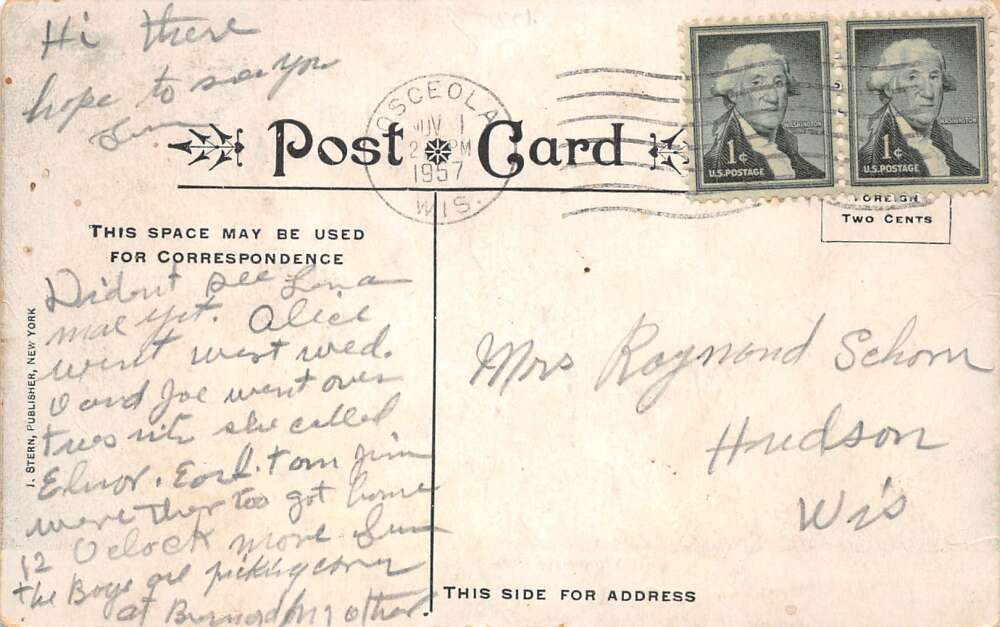 Hi there
hope to see you
Post Card
OSCEOLA
NOV 1
2 PM
1957
WIS.
WASHINGTON
1¢
U.S. POSTAGE
WASHINGTON
1¢
U.S. POSTAGE
FOREIGN
TWO CENTS
THIS SPACE MAY BE USED
FOR CORRESPONDENCE
Didont see Lona
mae yet. Alice
went west wed.
O and Joe went over
tues nite she called
Elnor. Earl. Tom Jim
were ther too got home
12 Oclock more fun
the Boys are picking corn
at
J. STERN, PUBLISHER, NEW YORK
Mrs Raymond Schorn
Hudson
Wis
THIS SIDE FOR ADDRESS